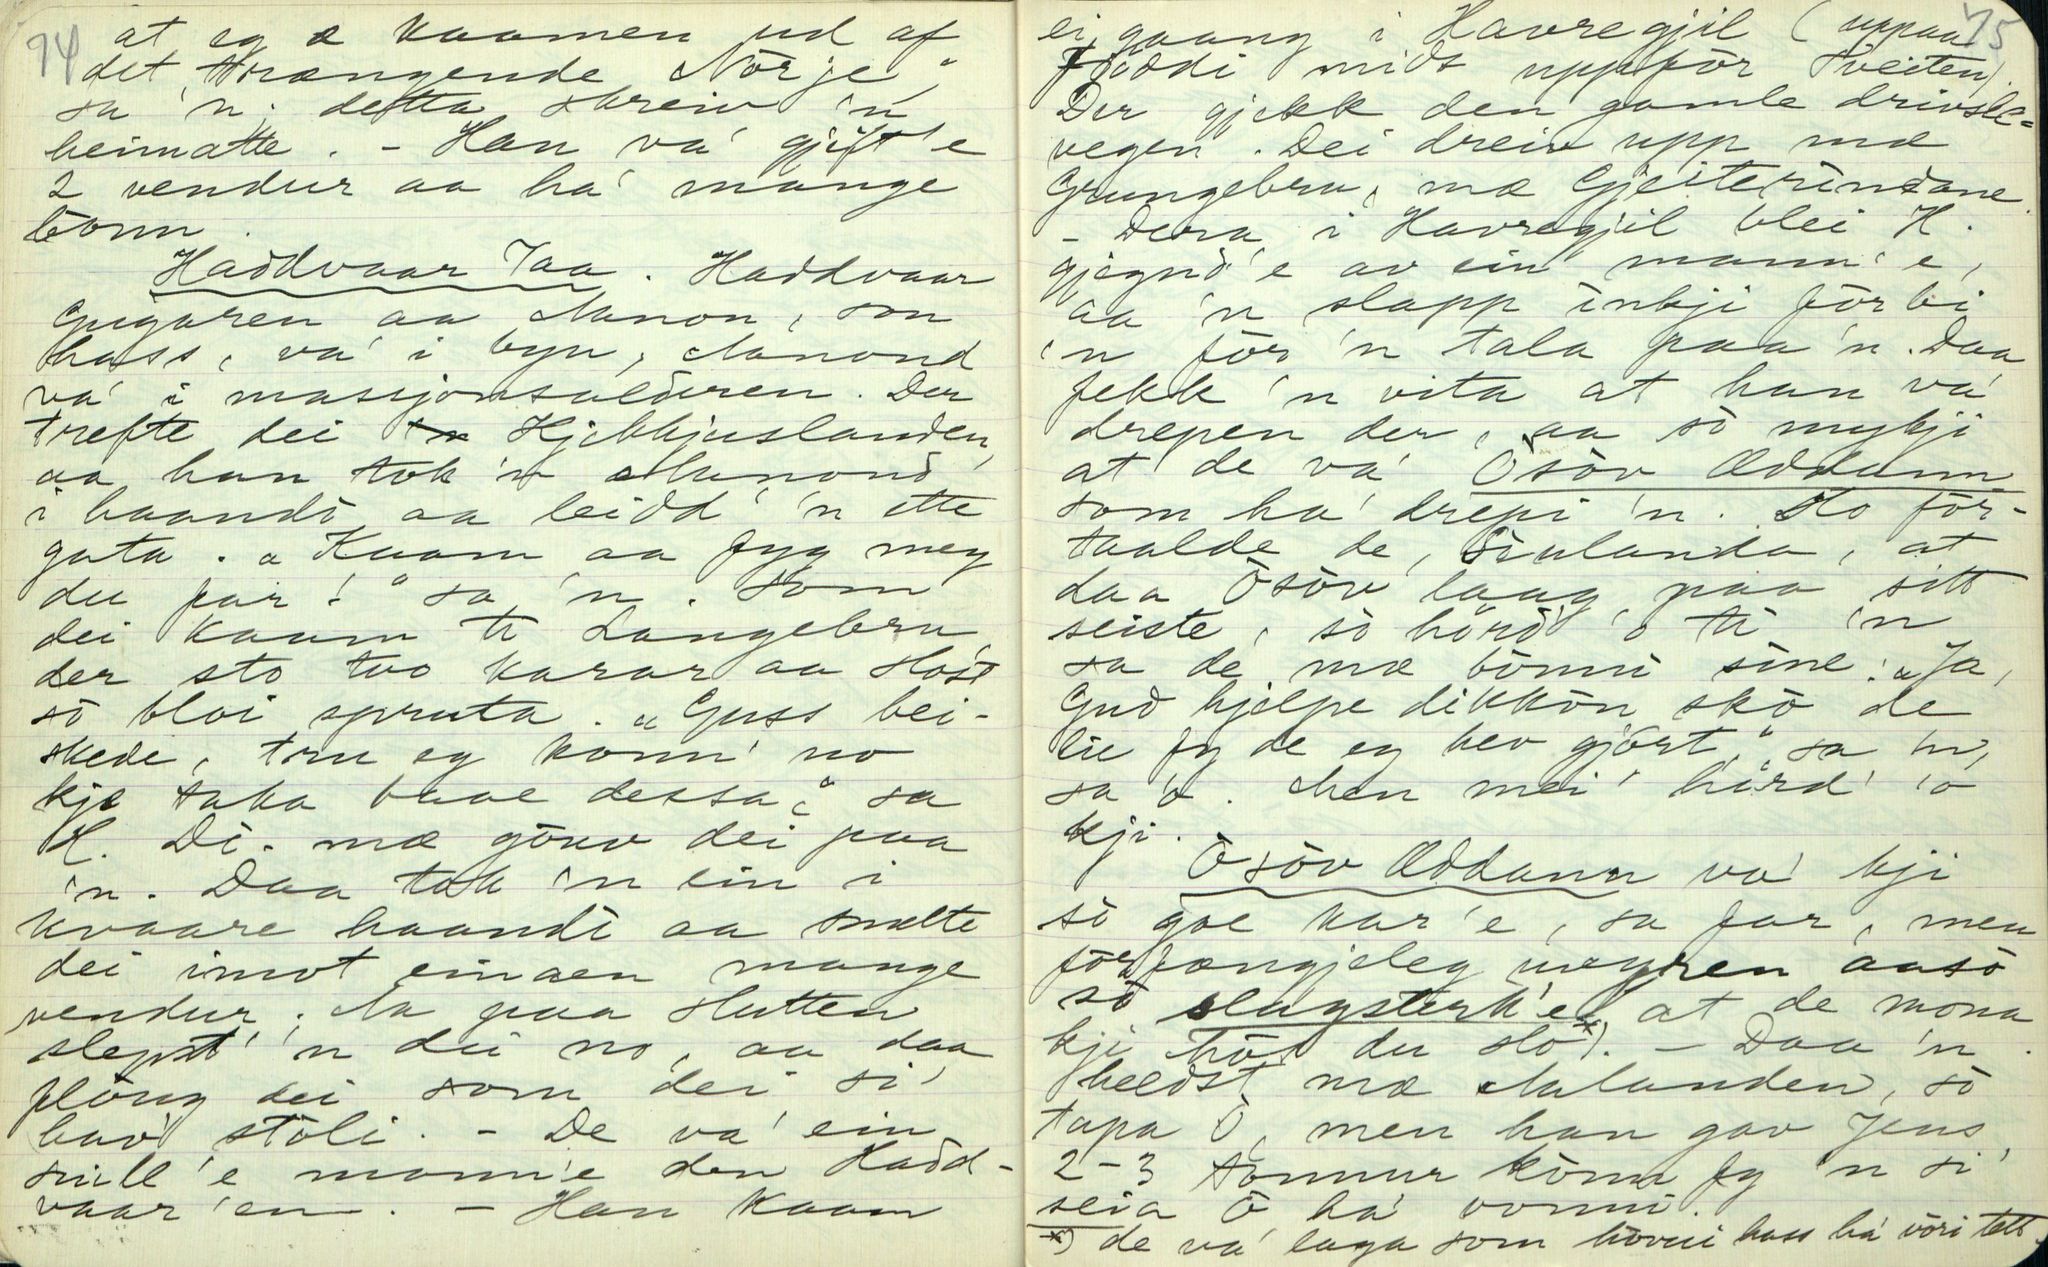 94
at eg æ kaamen ud af
det "trængende Nörje",
sa 'n; detta skreiv 'n
heimatte. - Han va' gjift'e
2 vendur aa ha' mange
bonn.
Haddvaar Jaa. Haddvaar
Gjigaren aa Aanon, son
hass, va' i byn, Aanond
va' i massjonsalderen. Der
trefte dei Hjekkjuslanden,
aa han tok 'n Aanond
i haandi aa leidd' 'n ette
gata. "Kaam aa fyg meg
du far!" sa 'n. Som
dei kaam ti Langebru,
der sto two karar aa slost
so bloi spruta. "Guss bei-
skede, tru eg konn' no
kje taka baae dessa," sa
H. Di- mæ gönv dei paa
'n. Daa tok 'n ein i
kvaare haandi aa smelte
dei imot einaen mange
vendur. Aa paa slutten
slepst' 'n dei no, aa daa
flöug dei som dei si'
hav' stöli. - De va' ein
snill'e mann'e den Hadd-
vaar'en. - Han kaam
75
ei gaang i Havregjil (uppaa
Jöddi mids uppför Sveiten).
Der gjekk den gamle drivsle-
vegen. Dei dreiv upp mæ
Grungebru, mæ Gjeiterindane.
- Dera i Havregjil blei H.
gjegnd'e av ein mann'e,
aa 'n slapp inkji förbi
'n för 'n tala paa 'n. Daa
fekk 'n vita at han va'
drepen der, aa so mykji
at de va' Ösöv Æddann
som ha' drepi 'n. Ho för-
taalde de, Sulanda, at
daa Ösöv laag paa sitt
seiste, so hörd' 'o ti 'n
sa de mæ bönni sine: "Ja,
Gud hjelpe dikkön skö de
lie fy de eg hev gjort," sa 'n,
sa 'o. Men mei' hörd' 'o
kji.
Ösöv Æddann va' kji
so goe kar'e, sa far, men
förfængjeleg uvyren aasö
so slagsterk'e at de mona
kji hör du slo*). - Daa 'n
heldst mæ Aalanden, so
tapa Ö, men han gav Jens
2-3 tonnur könn fy 'n si'
seia Ö ha' vonni.
*) de va' laga som hövüi hass ha' vöri tett.